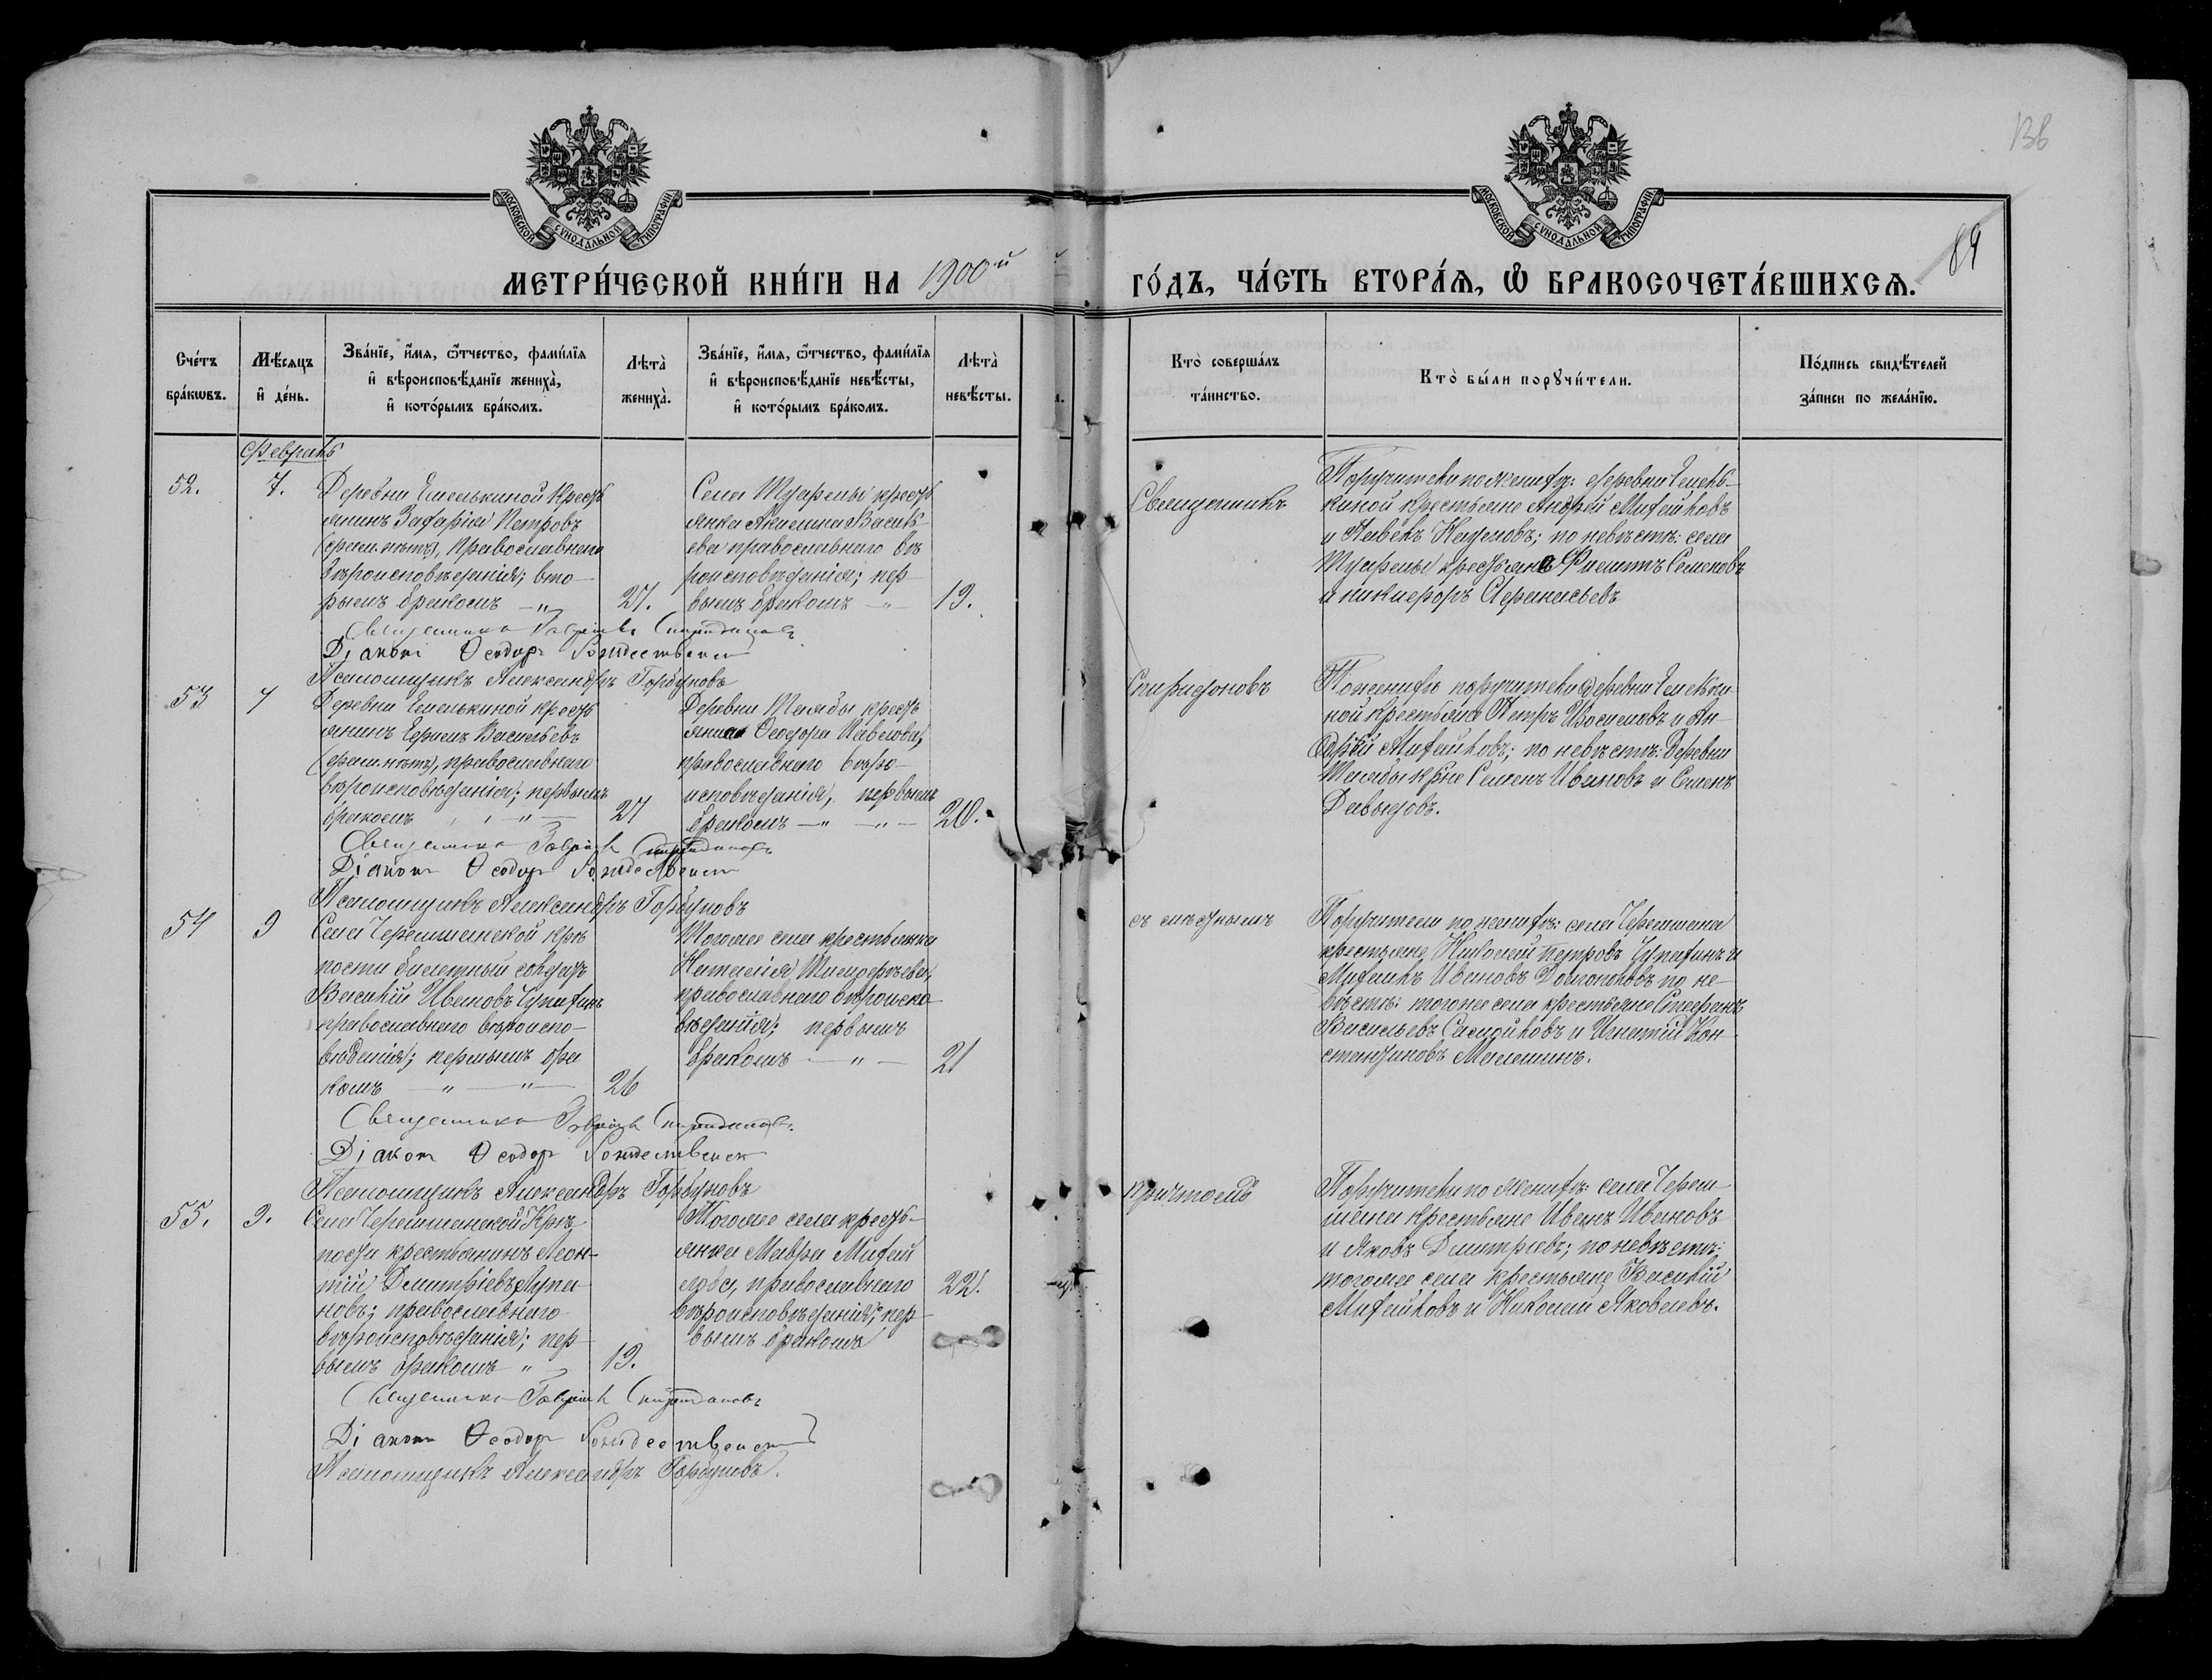 136
МОСКОВСКОЙ СѴНОДАЛЬНОЙ ТИПОГРАФІИ
МОСКОВСКОЙ СѴНОДАЛЬНОЙ ТИПОГРАФІИ
89
МЕТРИ́ЧЕСКОЙ КНИ́ГИ НА 1900й
ГО́ДЪ, ЧА́СТЬ ВТОРА́Ѧ, Ѽ БРАКОСОЧЕТА́ВШИХСѦ.
Сче́тъ бра́кѡвъ.
Мѣ́сяцъ и҆ де́нь.
Зва́нїе, и҆́мя, ѻ҆́тчество, фами́лїя
и҆ вѣроисповѣ́данїе жениха̀,
и҆ кото́рымъ бра́комъ.
Лѣта̀ жениха̀.
Зва́нїе, и҆́мя, ѻ҆́тчество, фами́лїя
и҆ вѣроисповѣ́данїе невѣ́сты,
и҆ кото́рымъ бра́комъ.
Лѣта̀ невѣ́сты.
Кто̀ соверша́лъ
та́инство.
Кто̀ бы́ли порꙋчи́тели.
По́дпись свидѣ́телей
за́писи по жела́нїю.
Февраль
52.
7.
Деревни Емелькиной крестъ
янинъ Захарія Петровъ
(фам. нѣтъ), православнаго
вѣроисповѣданія; вто-
рымъ бракомъ — „
27.
Села Туармы крестъ
янка Акилина Василь-
ева православнаго вѣ
роисповѣданія; пер-
вымъ бракомъ — „
19.
Священникъ
Поручители по женихѣ: деревни Емель-
киной крестьяне Андрей Михайловъ
и Павелъ Наумовъ; по невѣстѣ: села
Туармы крестьяне Филиппъ Семеновъ
и Никифоръ Афанасьевъ
Священникъ Гавріилъ Спиридоновъ
Діаконъ Ѳеодоръ Рождественскій
Псаломщикъ Александръ Горбуновъ
53
7
Деревни Емелькиной крестъ
янинъ Ефремъ Васильевъ
(фам. нѣтъ), православнаго
вѣроисповѣданія; первымъ
бракомъ „ —
27
Деревни Таябы крестъ
янка Ѳеодора Павлова,
православнаго вѣро-
исповѣданія, первымъ
бракомъ — „ — „ —
20.
Спиридоновъ
По женихѣ поручители деревни Емельки-
ной крестьяне Петръ и Ан-
дрей Михайловъ; по невѣстѣ: деревни
Таябы кр-не Семенъ Ивановъ и Семенъ
Давыдовъ.
Священникъ Гавріилъ Спиридоновъ
Діаконъ Ѳеодоръ Рождественскій
Псаломщикъ Александръ Горбуновъ
54
9
Села Черемшанской крѣ
пости билетный солдатъ
Василій Ивановъ Чупахинъ
православнаго вѣроиспо-
вѣданія; первымъ бра
комъ — „ — „ —
26
Тогоже села крестьянка
Наталія
православнаго вѣроиспо
вѣданія; первымъ
бракомъ — „ —
21
съ мѣстнымъ
Поручители по женихѣ: села Черемшана
крестьяне Николай Петровъ Чупахинъ и
Михаилъ Ивановъ по не-
вѣстѣ: тогоже села крестьяне Стефанъ
Васильевъ Самойловъ и Игнатій Кон-
стантиновъ Малышинъ.
Священникъ Гавріилъ Спиридоновъ.
Діаконъ Ѳеодоръ Рождественскій
Псаломщикъ Александръ Горбуновъ
55.
9.
Села Черемшанской крѣ
пости крестьянинъ Леон-
тій Дмитріевъ Лупа
новъ; православнаго
вѣроисповѣданія; пер-
вымъ бракомъ „ —
19.
Тогоже села кресть-
янка Мавра Михай
лова, православнаго
вѣроисповѣданія; пер-
вымъ бракомъ
22.
причтомъ
Поручители по женихѣ: села Черем-
шана крестьяне Иванъ Ивановъ
и Яковъ Дмитріевъ; по невѣстѣ:
тогоже села крестьяне Василій
Михайловъ и Николай Яковлевъ.
Священникъ Гавріилъ Спиридоновъ
Діаконъ Ѳеодоръ Рождественскій
Псаломщикъ Александръ Горбуновъ.